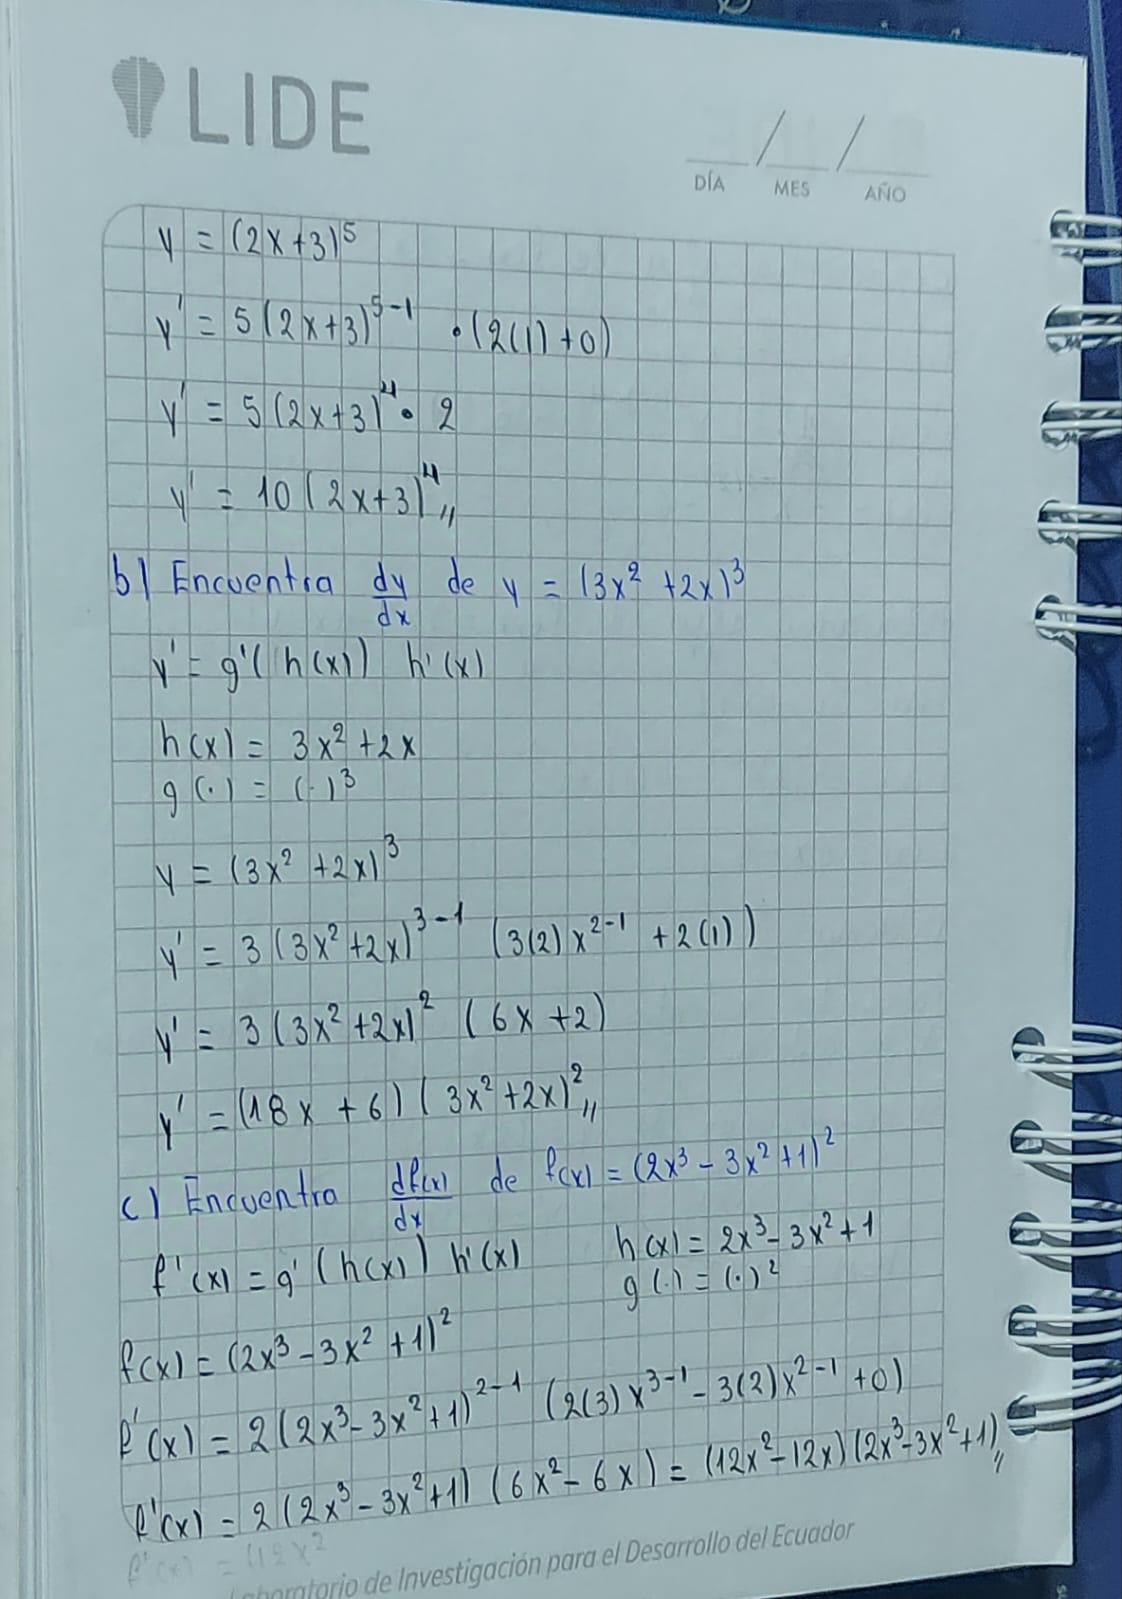 LIDE
DÍA / MES / AÑO
y = (2x+3)^5
y' = 5(2x+3)^5-1 • (2(1)+0)
y' = 5(2x+3)^4 • 2
y' = 10(2x+3)^4 ,,
b) Encuentra dy/dx de y = (3x^2 +2x)^3
y' = g'(h(x)) h'(x)
h(x) = 3x^2 +2x
g(·) = (·)^3
y = (3x^2 +2x)^3
y' = 3(3x^2+2x)^3-1 (3(2)x^2-1 +2(1))
y' = 3(3x^2+2x)^2 (6x+2)
y' = (18x + 6)(3x^2+2x)^2 ,,
c) Encuentra df(x)/dx de f(x) = (2x^3 - 3x^2 +1)^2
f'(x) = g'(h(x)) h'(x)
h(x) = 2x^3 - 3x^2 + 1
g(·) = (·)^2
f(x) = (2x^3 - 3x^2 +1)^2
f'(x) = 2(2x^3 - 3x^2+1)^2-1 (2(3)x^3-1 - 3(2)x^2-1 +0)
f'(x) = 2(2x^3 - 3x^2+1) (6x^2 - 6x) = (12x^2-12x)(2x^3-3x^2+1) ,,
f'(x) = (12x^2
Laboratorio de Investigación para el Desarrollo del Ecuador